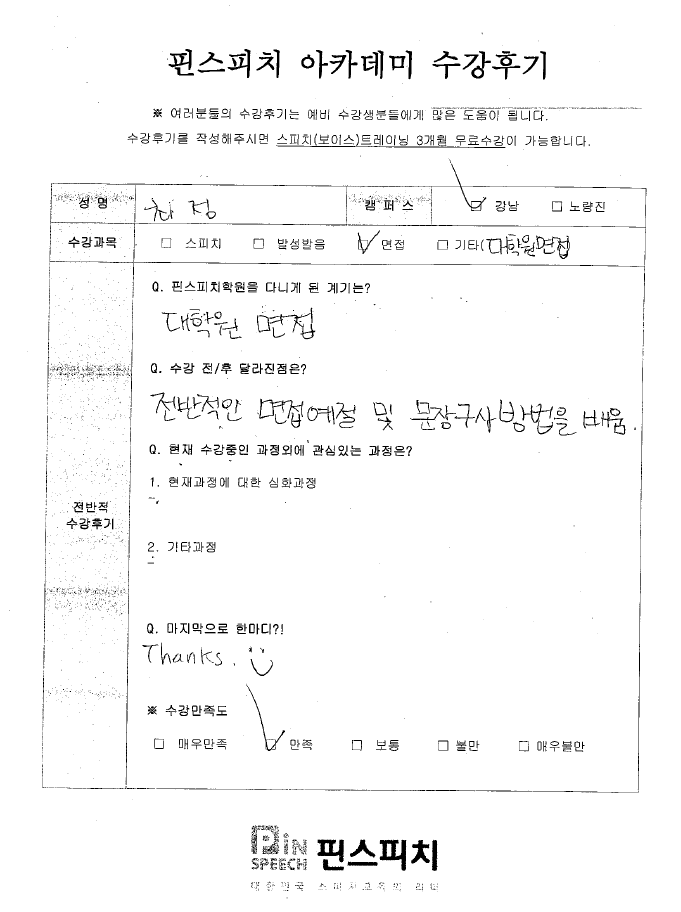 핀스피치 아카데미 수강후기
※ 여러분들의 수강후기는 예비 수강생분들에게 많은 도움이 됩니다.
수강후기를 작성해주시면 스피치(보이스)트레이닝 3개월 무료수강이 가능합니다.
성 명 정 캠 퍼 스 ☑ 강남 □ 노량진
수강과목 □ 스피치 □ 발성발음 ☑ 면접 □ 기타(대학원면접
Q. 핀스피치학원을 다니게 된 계기는?
대학원 면접
Q. 수강 전/후 달라진점은?
전반적인 면접예절 및 문장구사방법을 배움.
Q. 현재 수강중인 과정외에 관심있는 과정은?
1. 현재과정에 대한 심화과정
전반적
수강후기
2. 기타과정
Q. 마지막으로 한마디?!
Thanks.
※ 수강만족도
□ 매우만족 ☑ 만족 □ 보통 □ 불만 □ 매우불만
PiN
SPEECH 핀스피치
대한민국 스피치교육의 리더